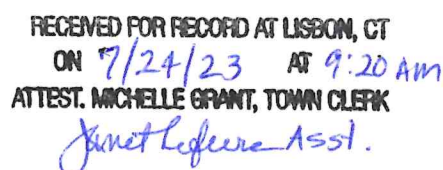 RECEIVED FOR RECORD AT LISBON, CT
ON 7/24/23 AT 9:20 AM
ATTEST. MICHELLE GRANT, TOWN CLERK
Janet Lefevre Asst.